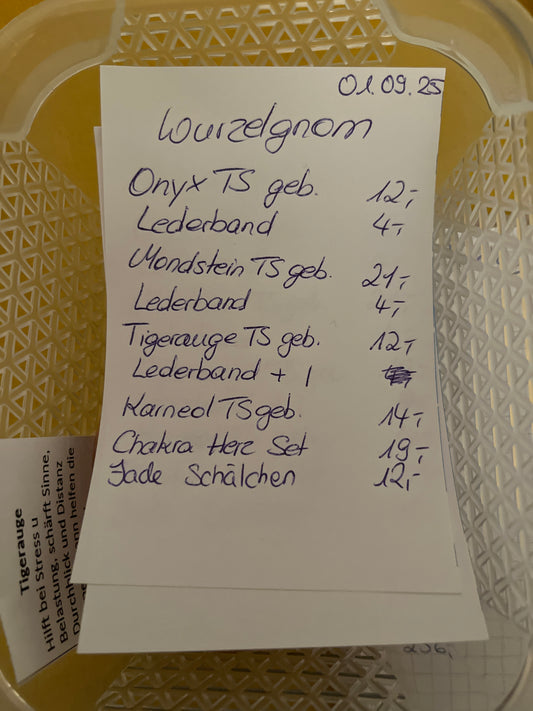 01.09.25
Wurzelgnom
Onyx TS geb. 12,-
Lederband 4,-
Mondstein TS geb. 21,-
Lederband 4,-
Tigerauge TS geb. 12,-
Lederband + 1
Karneol TS geb. 14,-
Chakra Herz Set 19,-
Jade Schälchen 12,-
Tigerauge
Hilft bei Stress u
Belastung, schärft Sinne,
Durchblick und Distanz
helfen die